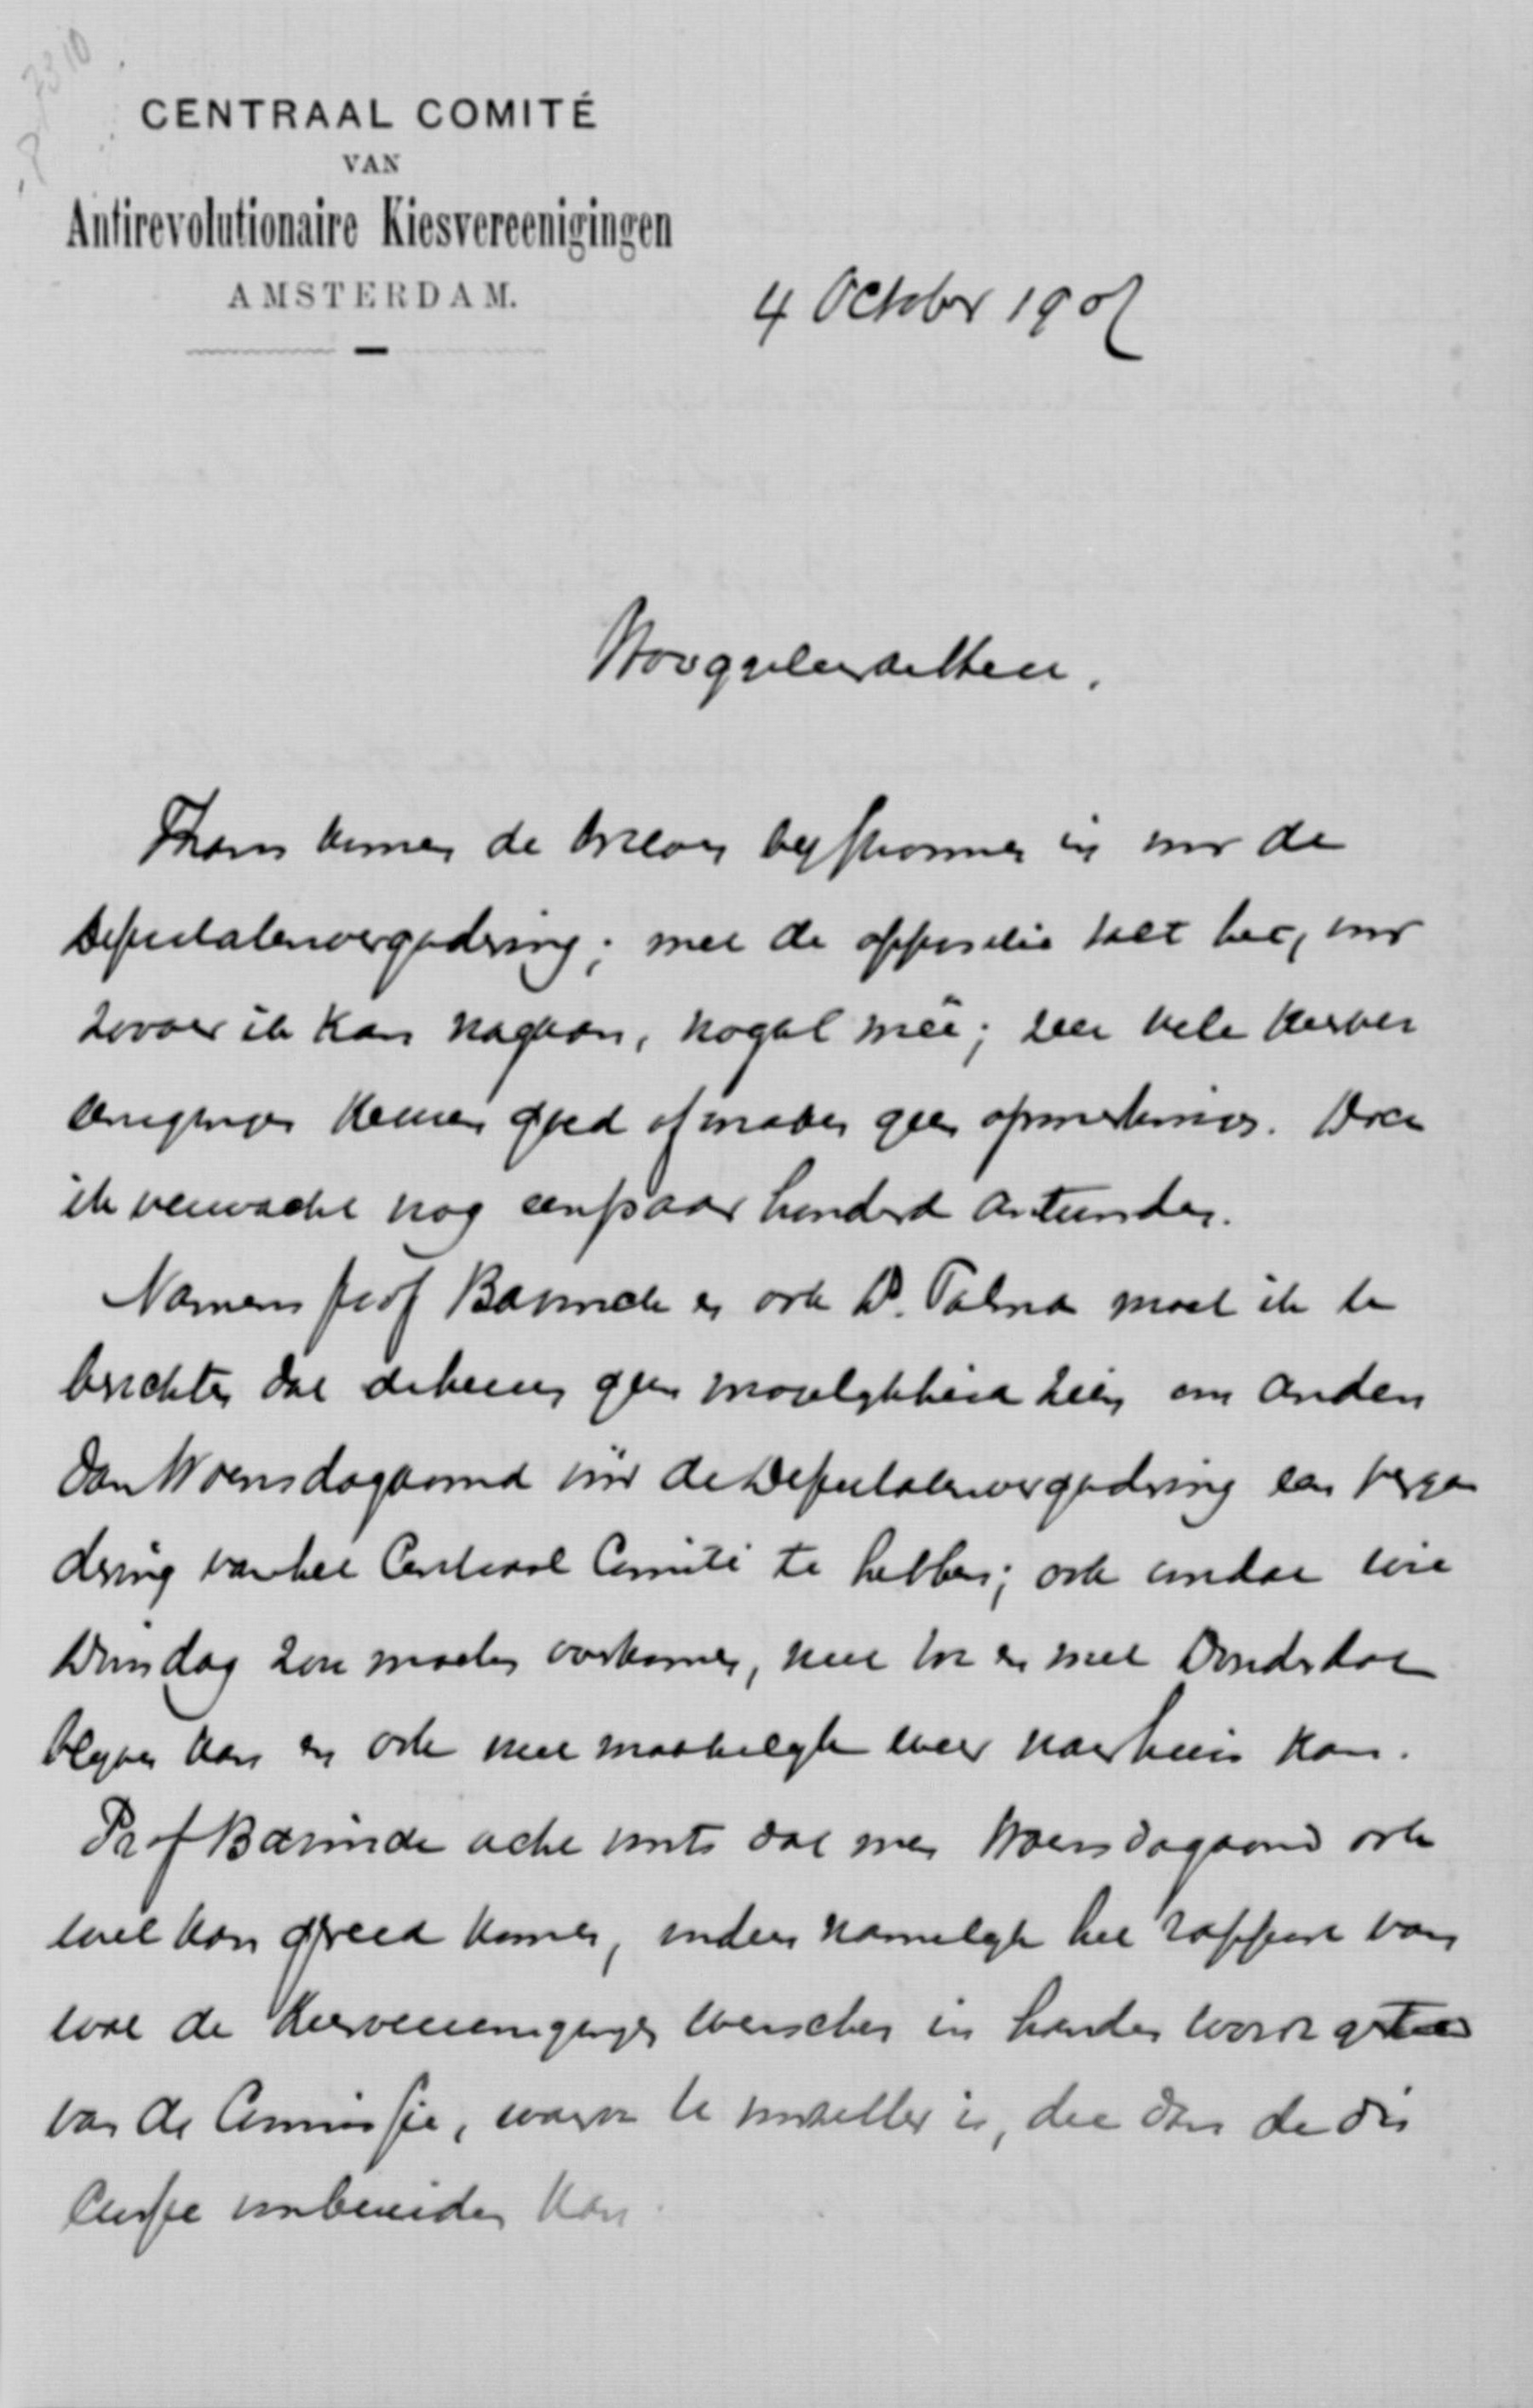 7310
CENTRAAL COMITÉ
VAN
Antirevolutionaire Kiesvereenigingen
AMSTERDAM.
4 October 190
Thans komen de brieven by stroomen in voor de
Deputatenvergadering; met de oppositie valt het, voor
zoover ik kan nagaan, nogal meê; zeer vele kiesver
eenigingen keuren goed of maken geen opmerkingen. Doch
ik verwacht nog eenpaar honderd antwoorden.
Namens prof Bavinck en ook Ds. Talma moet ik te
berichten dat die heeren geen mogelykheid zien om anders
dan Woensdagavond vóór de Deputatenvergadering een verga
dering van het Centraal Comité te hebben; ook omdat wie
Dinsdag zou moeten overkomen, niet tot en met Donderdag
blyven kan en ook niet makkelyk weer naar huis kan.
Prof Bavinck acht voorts dat men Woensdagavond ook
wel kan gereed komen, indien namelyk het rapport van
wat de Kiesvereenigingen wenschen in handen wordt gesteld
van de Commissie, waarvan te is, die dan de dis
cussie voorbereiden kan.